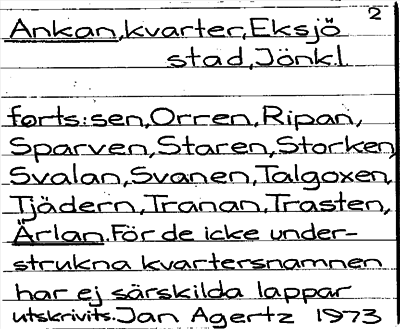 2
Ankan, kvarter, Eksjö
stad, Jönk.l
forts: sen, Orren, Ripan,
Sparven, Staren, Storken,
Svalan, Svanen, Talgoxen,
Tjädern, Tranan, Trasten,
Ärlan. För de icke under-
strukna kvartersnamnen
har ej särskilda lappar
utskrivits. Jan Agertz 1973